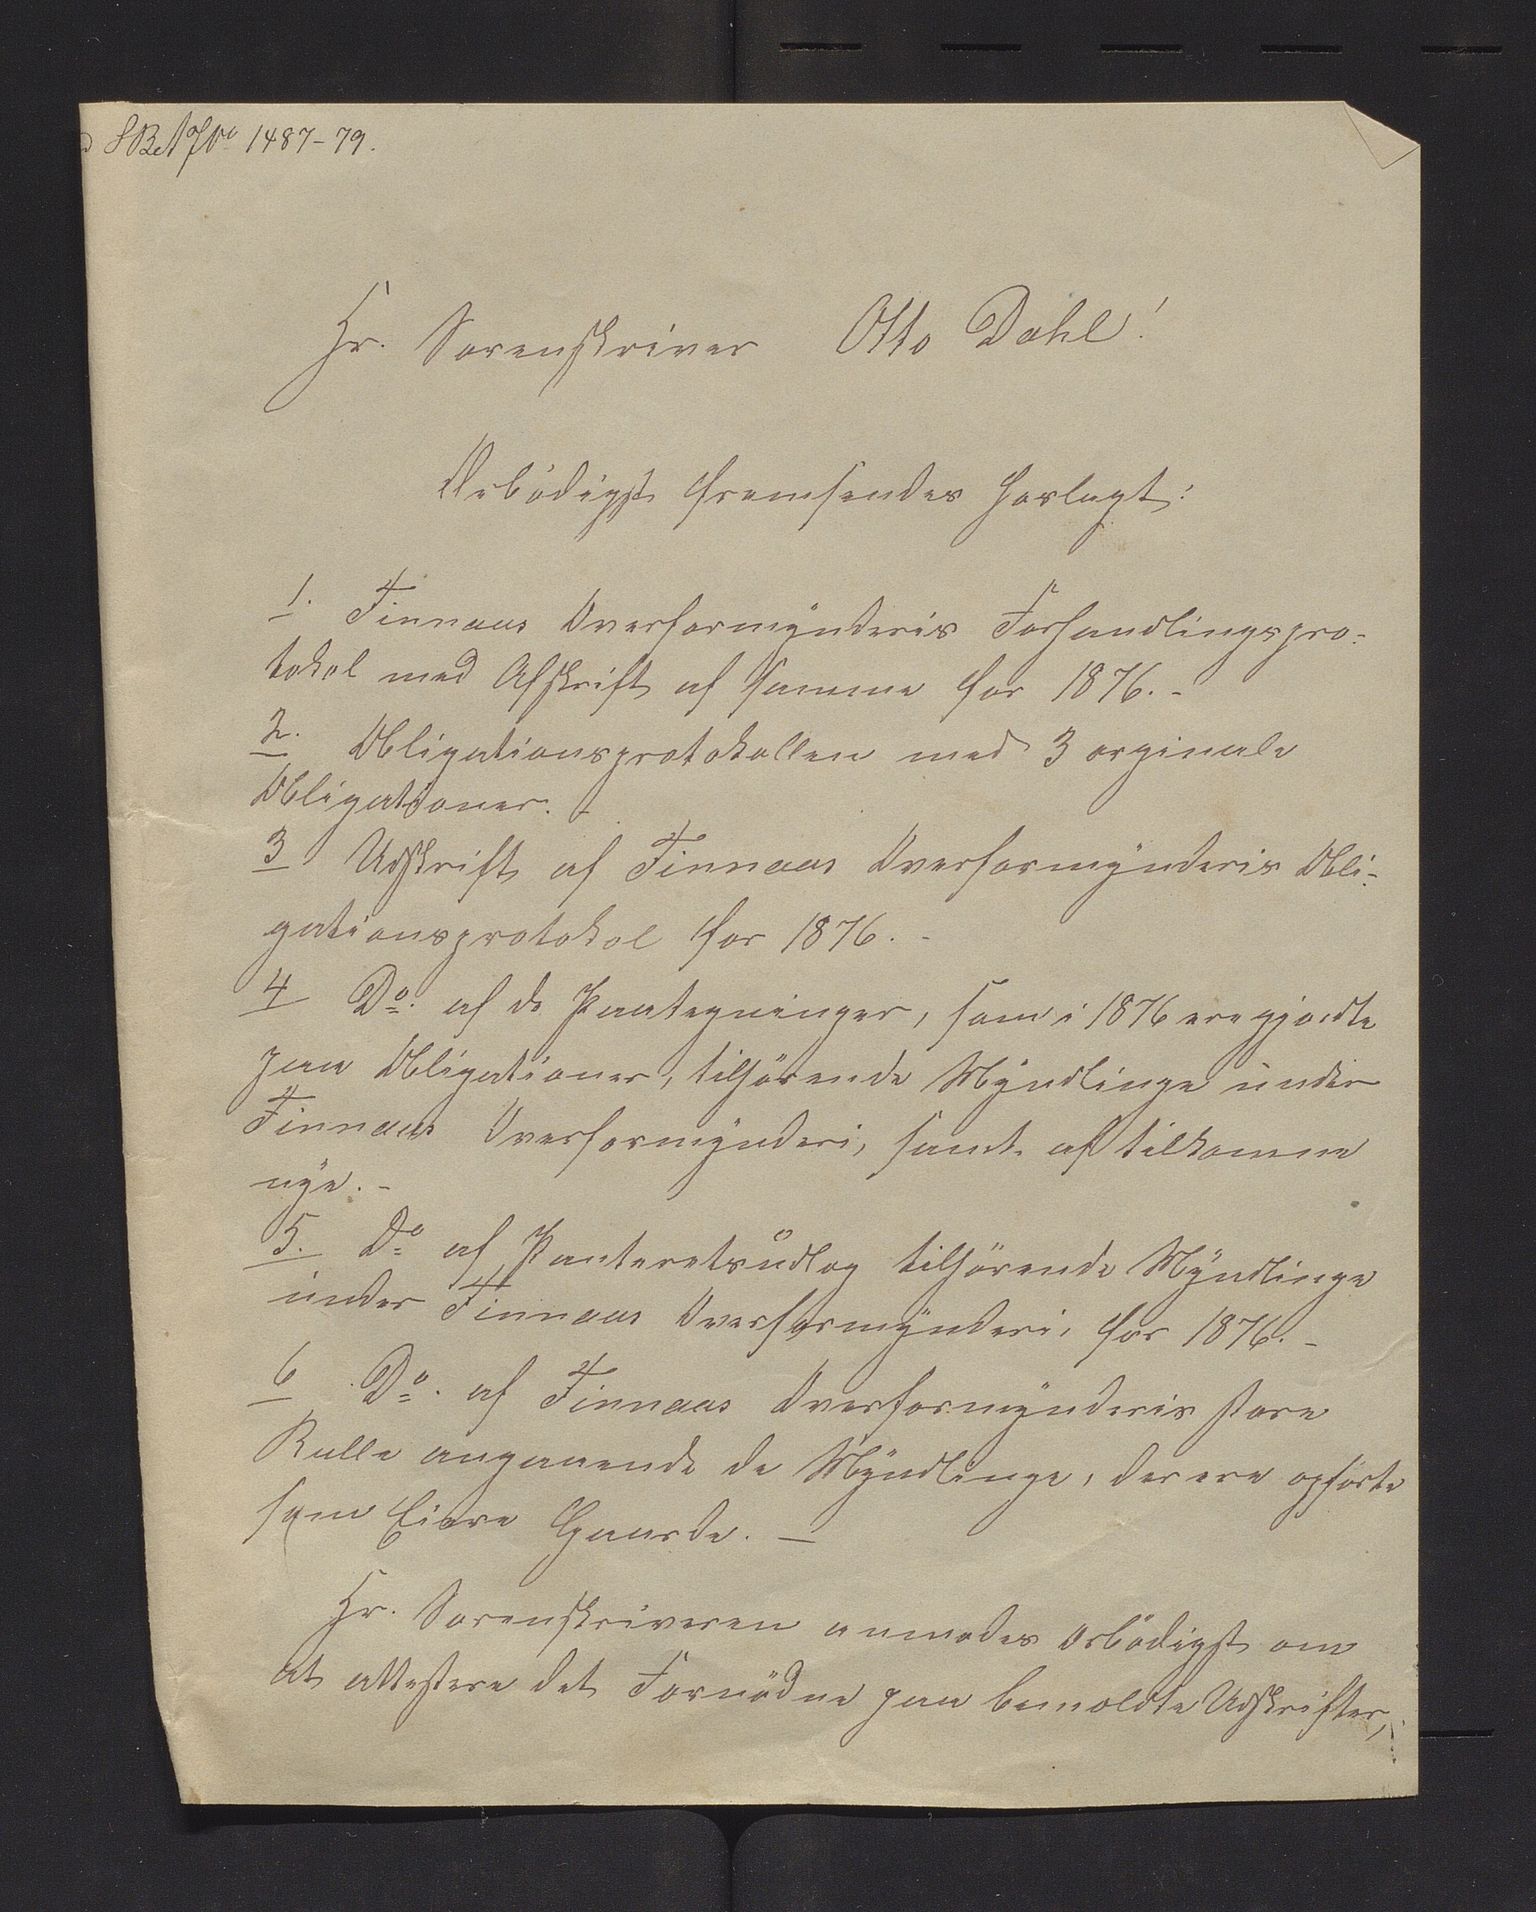 1487-79.
Hr. Sorenskriver Otto Dahl!
Ærbödigst fremsendes hoslagt:
1. Finnaas Overformynderis Forhandlingspro-
tokol med Afskrift af samme for 1876. -
2. Obligationsprotokollen med 3 orginale
Obligationer. -
3 Udskrift af Finnaas Overformynderis Obli-
gationsprotokol for 1876. -
4 Do. af de Paategninger, som i 1876 ere gjordte
paa Obligationer, tilhörende Myndlinge under
Finnaas Overformynderi, samt af tilkomne
nye. -
5. Do af Panteretsudlog tilhörende Myndlinge
under Finnaas Overformynderi, for 1876. -
6 Do. af Finnaas Overformynderis store
Rulle angaaende de Myndlinge, der ere opförte
som Eiere Gaarde. -
Hr. Sorenskriveren anmodes ærbödigst om
at attestere det Fornödne paa bemeldte Udskrifter,